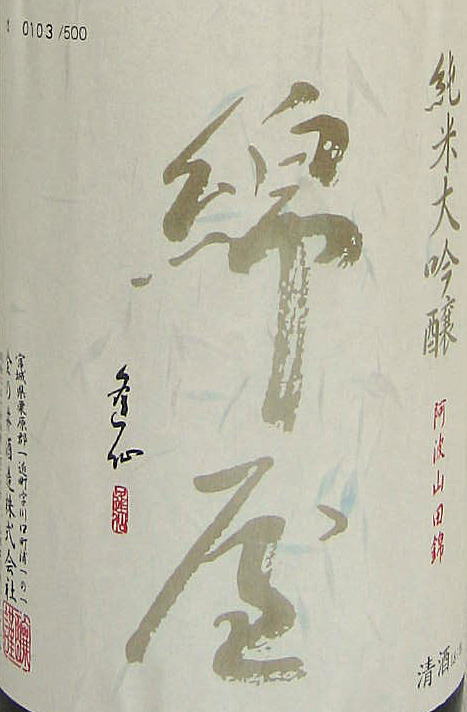 0103/500
純米大吟醸 阿波山田錦
清酒
綿屋
逢仙
宮城県栗原郡一迫町字川口町浦一の一
金の井酒造株式会社